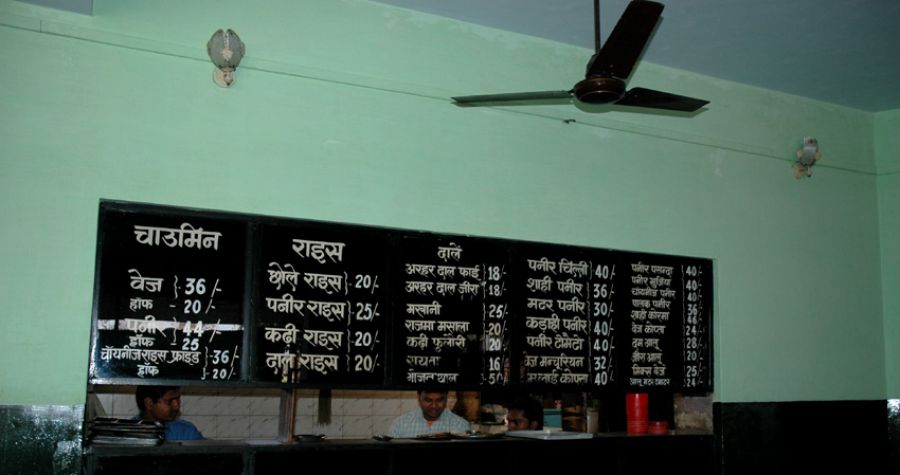 चाउमिन
वेज } 36/-
हॉफ - 20/-
पनीर } 44/-
हॉफ 25
चॉयनीजराइस फ्राइड } 36/-
हॉफ } 20/-
राइस
छोले राइस } 20/-
पनीर राइस } 25/-
कढ़ी राइस } 20/-
दाल राइस } 20/-
दालें
अरहर दाल फ्राई } 18/-
अरहर दाल जीरा } 18/-
मखानी } 25/-
राजमा मसाला } 20
कढ़ी फुलौरी } 20
रायता } 16
पनीर चिल्ली } 40/-
शाही पनीर } 36
मटर पनीर } 30
कड़ाही पनीर } 40
पनीर टोमेटो } 40
वेज मन्चूरियन } 32
मलाई कोफ्ता } 40
पनीर पसन्दा 40/-
पनीर भुजिया 40
चायनीज पनीर 40
पालक पनीर 36
शाही कोरमा
वेज कोफ्ता 24
दम आलू 28
जीरा आलू 20
मिक्स वेज 25
आलू मटर टमाटर 24